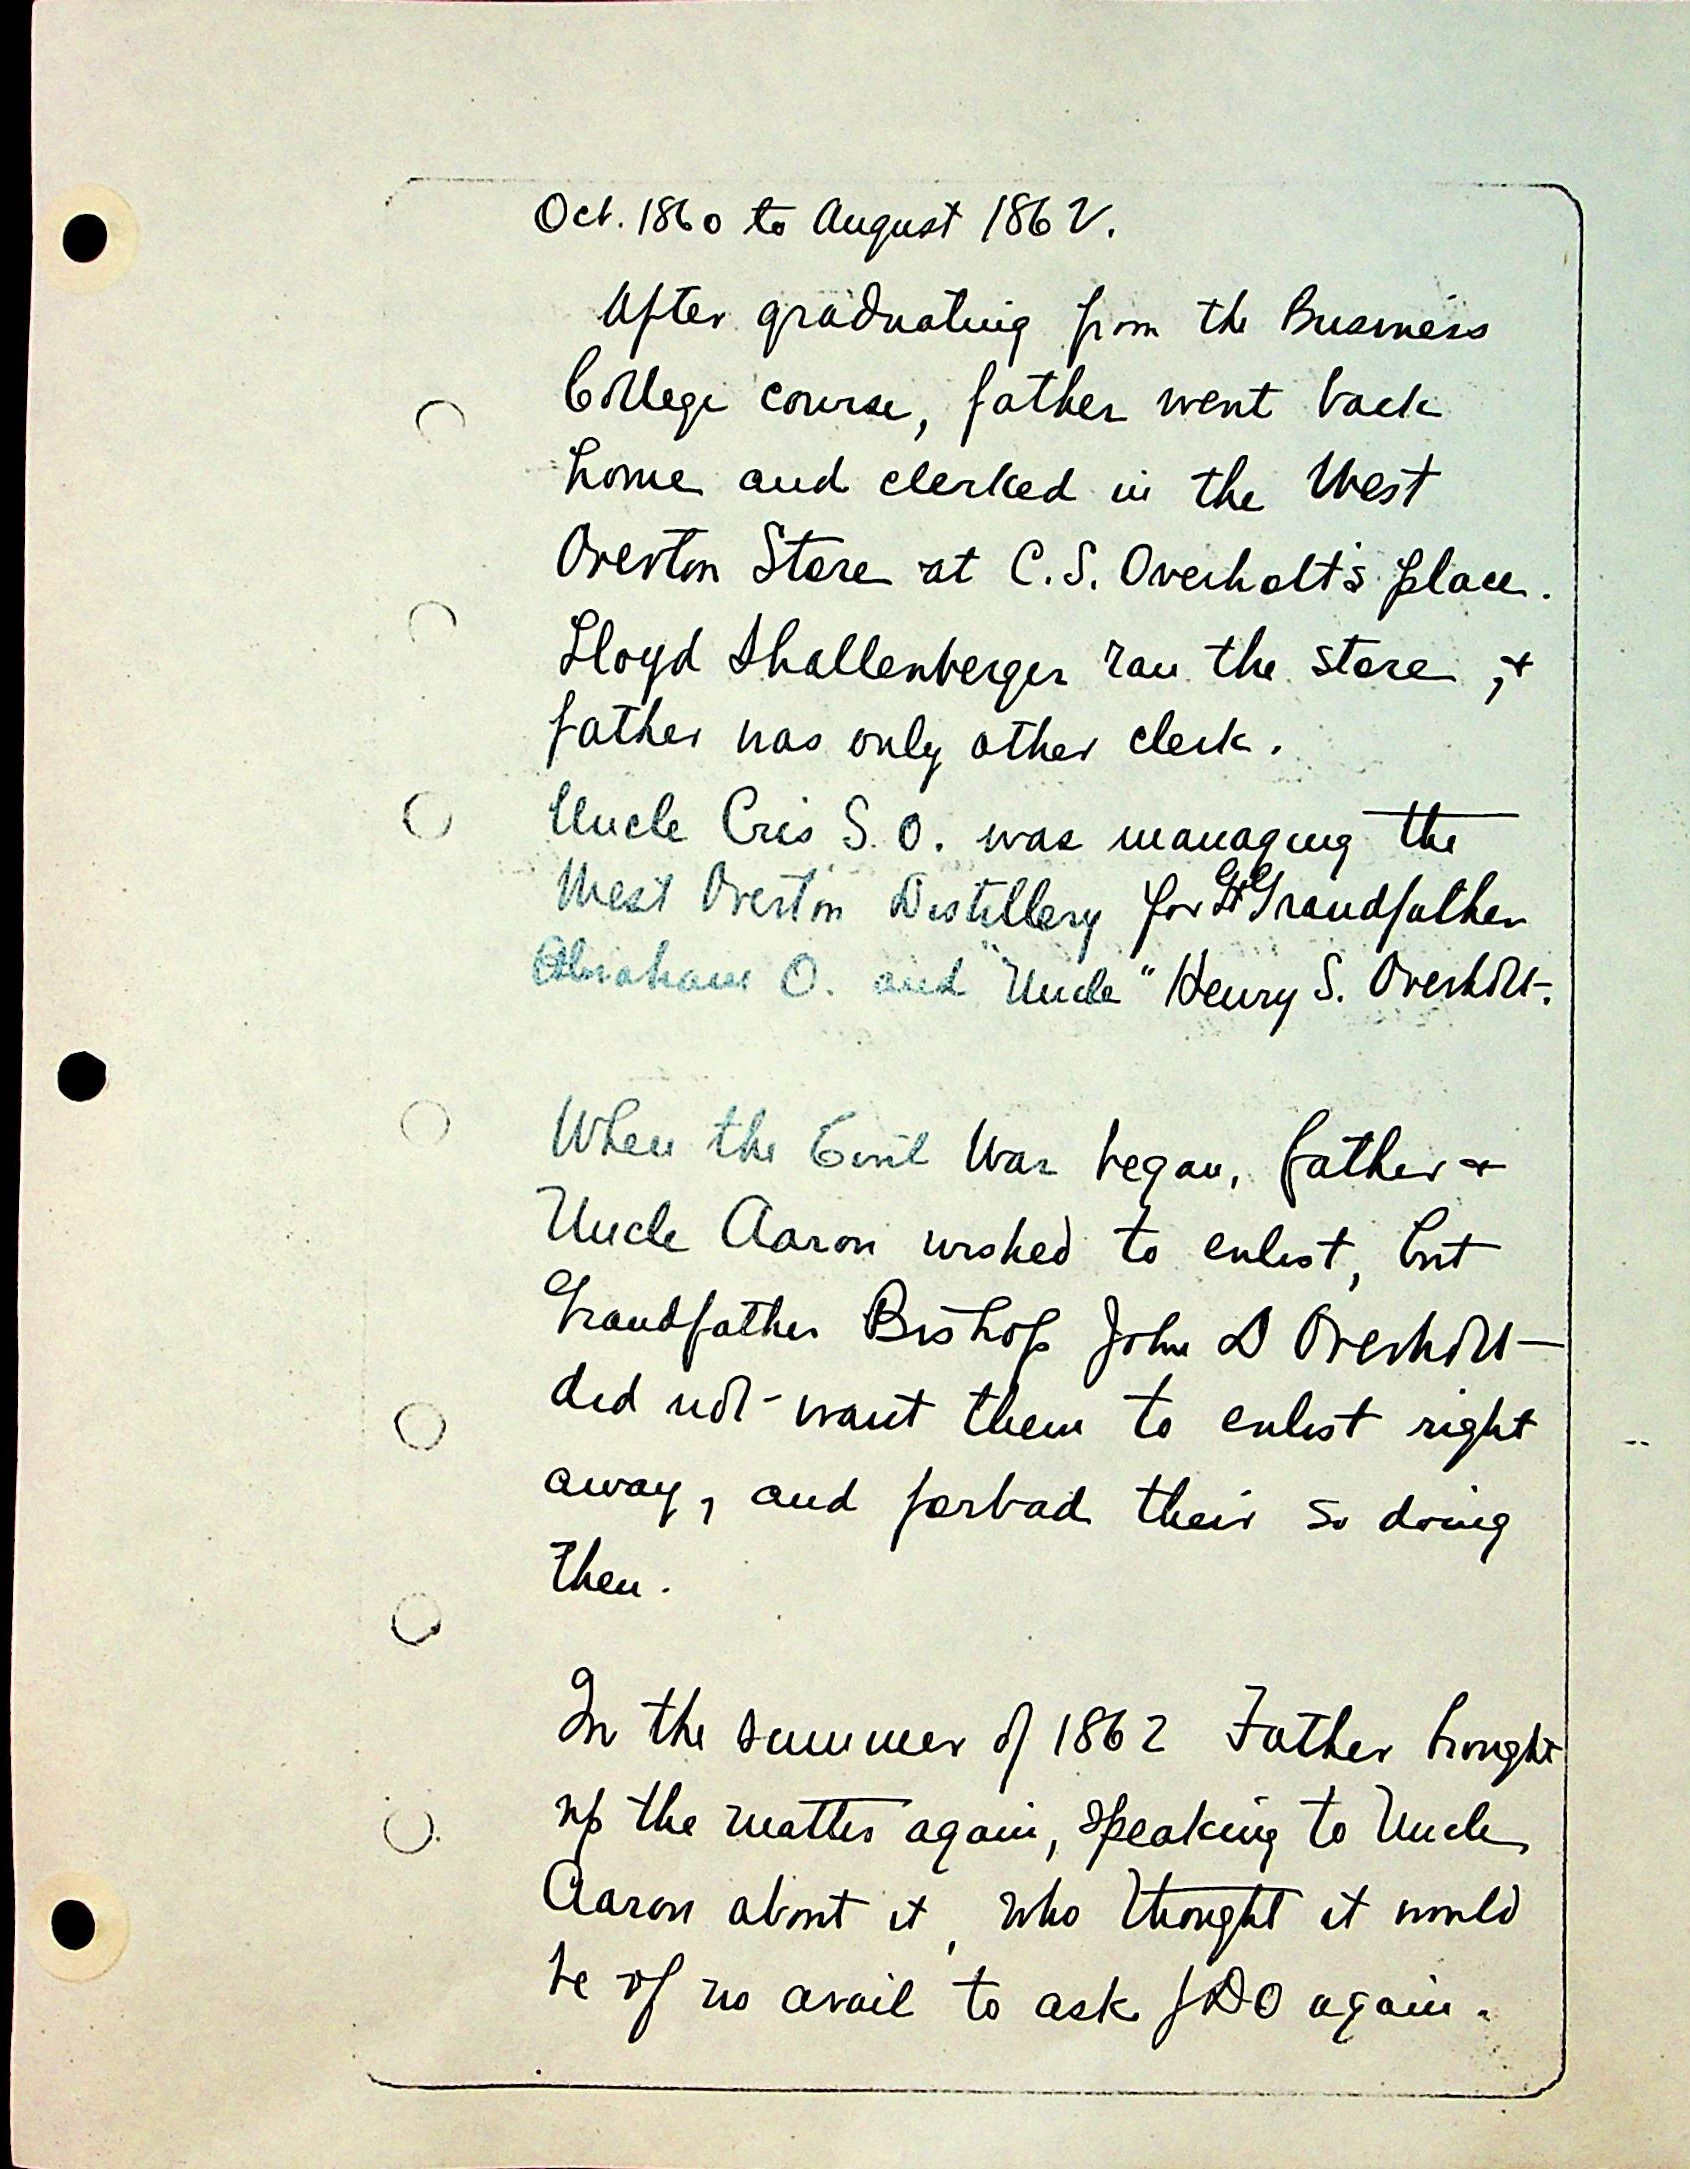 Oct. 1860 to August 1862.
After graduating from the Business
College course, father went back
home and clerked in the West
Overton Store at C.S. Overholt's place.
Lloyd Shallenberger ran the store, +
father was only other clerk.
Uncle Cris S. O. was managing the
West Overton Distillery for Gt Grandfather
Abraham O. and "Uncle" Henry S. Overholt.
When the Civil War began, father +
Uncle Aaron wished to enlist, but
Grandfather Bishop John D Overholt
did not want them to enlist right
away, and forbad their so doing
then.
In the summer of 1862 Father brought
up the matter again, speaking to Uncle
Aaron about it, who thought it would
be of no avail to ask JDO again.